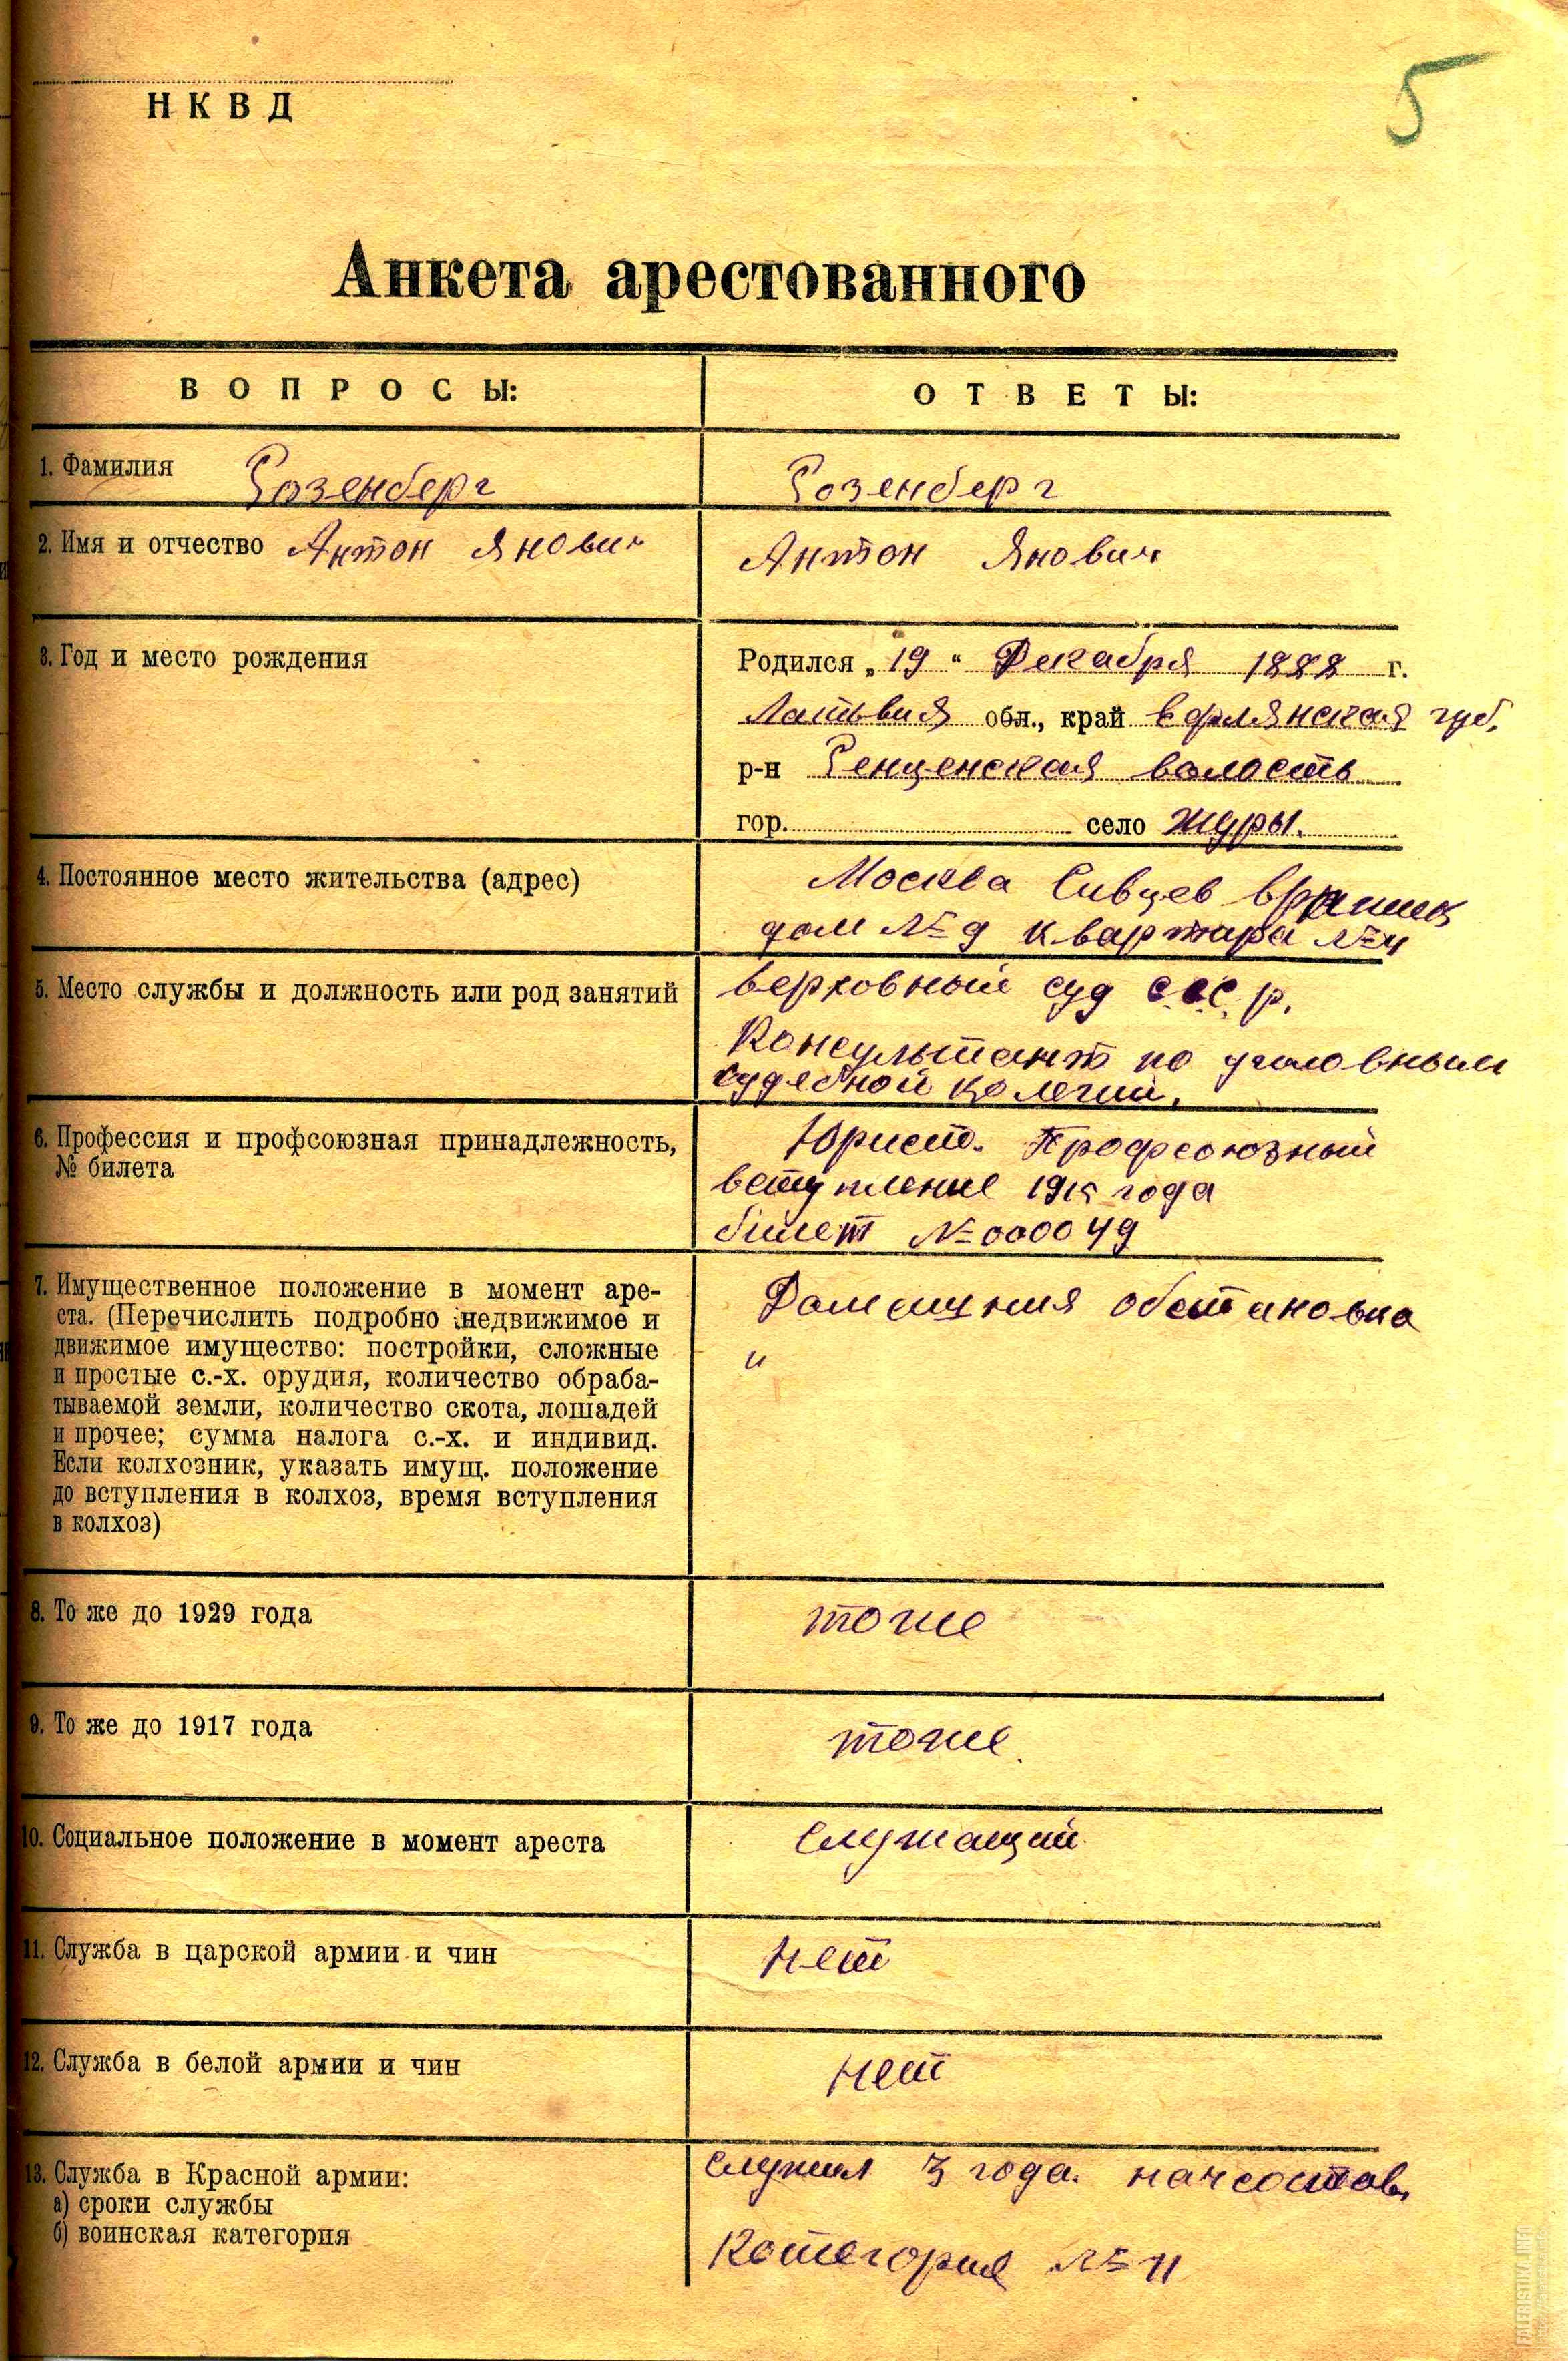 5
НКВД
Анкета арестованного
ВОПРОСЫ:
ОТВЕТЫ:
1. Фамилия Розенберг
Розенберг
2. Имя и отчество Антон Янович
Антон Янович
3. Год и место рождения
Родился „19“ Декабря 1888 г.
Латьвия обл., край губ.
р-н Ренценская волость
гор. село Журы.
4. Постоянное место жительства (адрес)
Москва Сивцев
дом № 9 квартира № 4
5. Место службы и должность или род занятий
Верховный суд С.С.С.р.
Консультант по уголовным
судебной колегии.
6. Профессия и профсоюзная принадлежность,
№ билета
Юрист. Профсоюзный
вступление 1915 года
билет № 000049
7. Имущественное положение в момент аре-
ста. (Перечислить подробно недвижимое и
движимое имущество: постройки, сложные
и простые с.-х. орудия, количество обраба-
тываемой земли, количество скота, лошадей
и прочее; сумма налога с.-х. и индивид.
Если колхозник, указать имущ. положение
до вступления в колхоз, время вступления
в колхоз)
обстановка
и
8. То же до 1929 года
тоже
9. То же до 1917 года
тоже
10. Социальное положение в момент ареста
Служащий
11. Служба в царской армии и чин
Нет
12. Служба в белой армии и чин
Нет
13. Служба в Красной армии:
а) сроки службы
б) воинская категория
Служил 3 года. начсостав.
Котегория № 11
FALERISTIKA.INFO